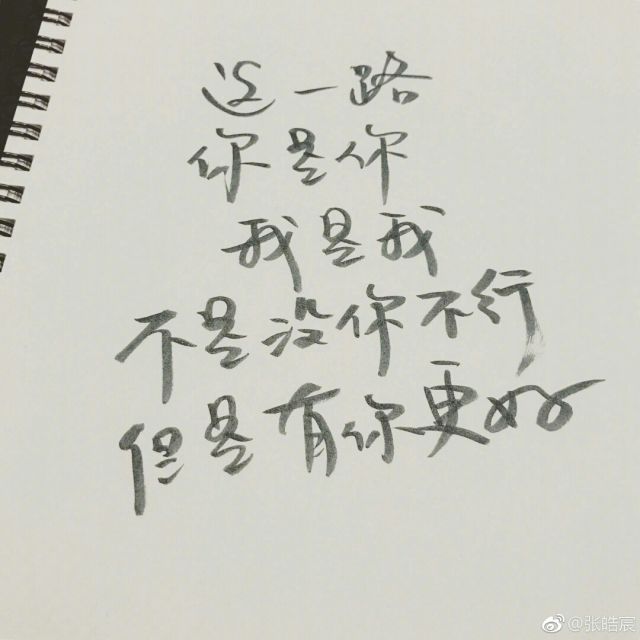 这一路
你是你
我是我
不是没你不行
但是有你更好
@张皓宸